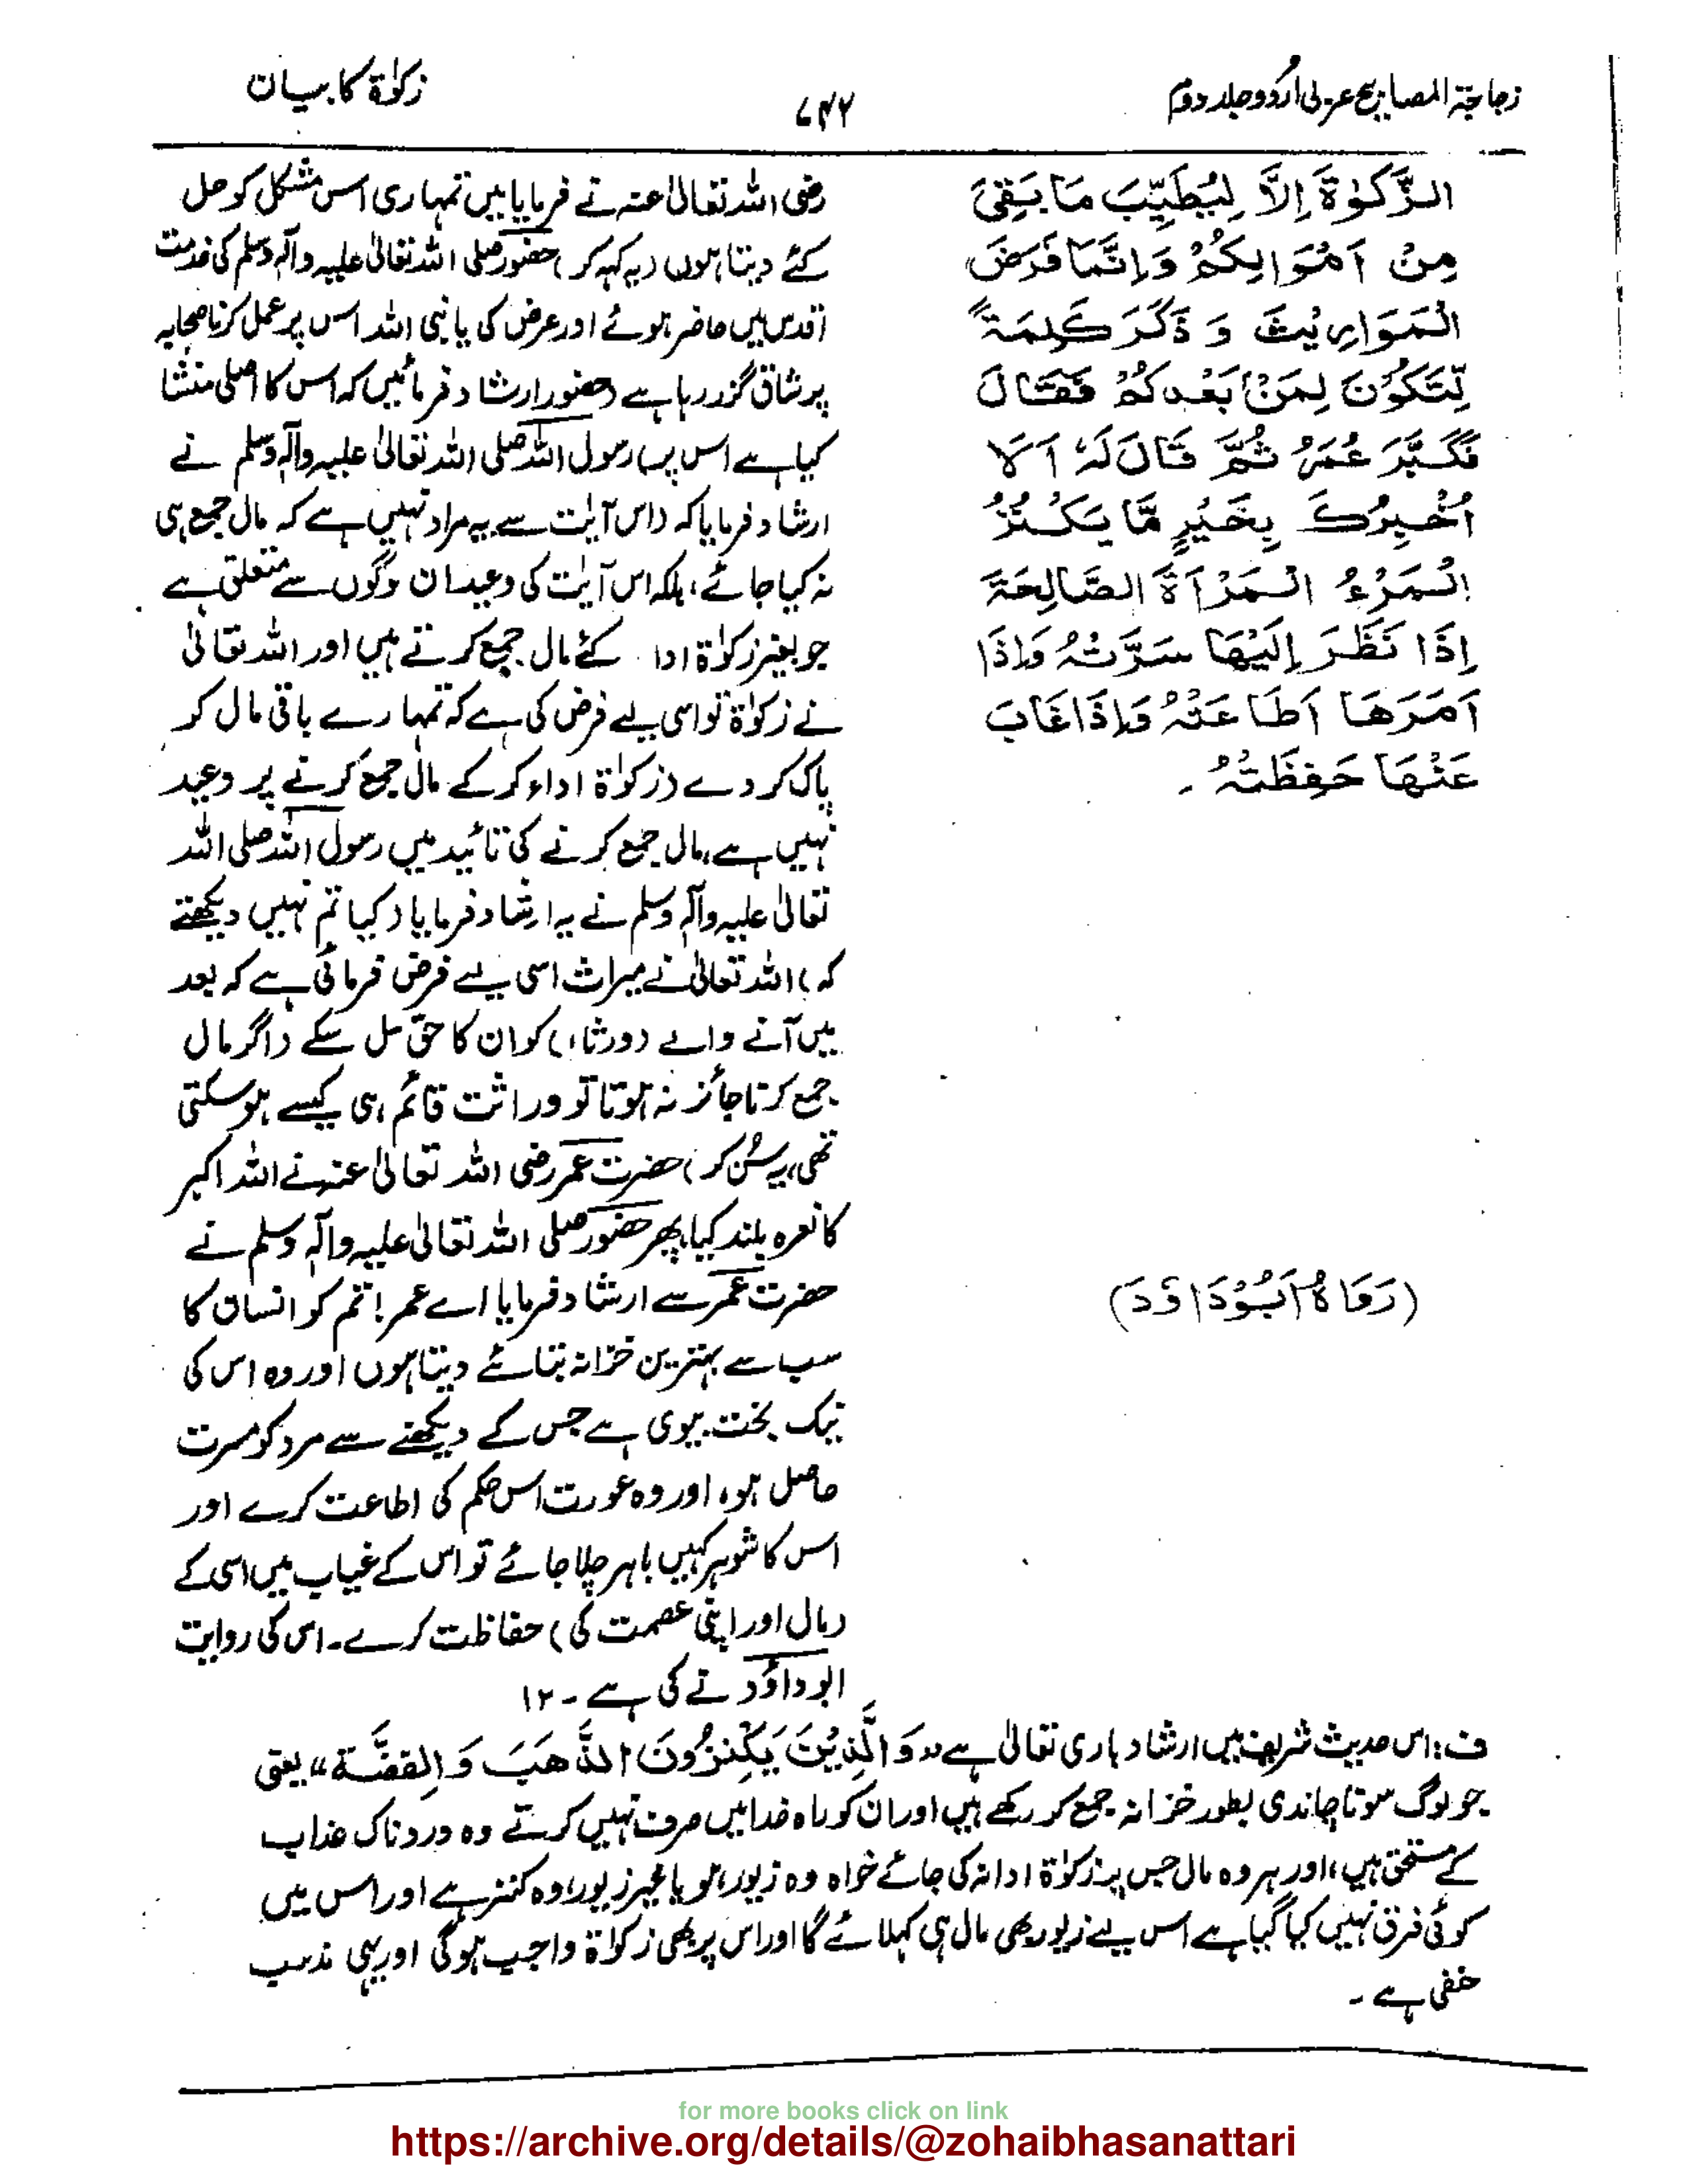 زجاجۃ المصابیح عربی اردو جلد دوم
۷۴۲
زکوٰۃ کا بیان
الزَّکٰوۃَ اِلَّا لِیُطَیِّبَ مَا بَقِیَ
مِنْ اَمْوَالِکُمْ وَاِنَّمَا فَرَضَ
الْمَوَارِیْثَ وَ ذَکَرَ کَلِمَۃً
لِّتَکُوْنَ لِمَنْ بَعْدِکُمْ فَقَالَ
فَکَبَّرَ عُمَرُ ثُمَّ قَالَ لَہٗ اَلَا
اُخْبِرُکَ بِخَیْرٍ مَّا یَکْنُزُ
الْمَرْءُ الْمَرْاَۃَ الصَّالِحَۃَ
اِذَا نَظَرَ اِلَیْهَا سَرَّتْہُ وَاِذَا
اَمَرَهَا اَطَاعَتْہُ وَاِذَا غَابَ
عَنْهَا حَفِظَتْہُ ۔
(رَوَاہُ اَبُوْدَاوٗدَ)
رضی اللہ تعالیٰ عنہ نے فرمایا میں تمہاری اس مشکل کو حل
کئے دیتا ہوں (یہ کہہ کر) حضور صلی اللہ تعالیٰ علیہ وآلہ وسلم کی خدمت
اقدس میں حاضر ہوئے اور عرض کی یا نبی اللہ اس پر عمل کرنا صحابہ
پر شاق گزر رہا ہے (حضور ارشاد فرمائیں کہ اس کا اصلی منشا
کیا ہے اس پر) رسول اللہ صلی اللہ تعالیٰ علیہ وآلہ وسلم نے
ارشاد فرمایا کہ (اس آیت سے یہ مراد نہیں ہے کہ مال جمع ہی
نہ کیا جائے، بلکہ اس آیت کی وعید ان لوگوں سے متعلق ہے
جو بغیر زکوٰۃ ادا کئے مال جمع کرتے ہیں اور اللہ تعالیٰ
نے زکوٰۃ تو اسی لیے فرض کی ہے کہ تمہارے باقی مال کر
پاک کر دے (زکوٰۃ اداء کرکے مال جمع کرنے پر وعید
نہیں ہے، مال جمع کرنے کی تائید میں رسول اللہ صلی اللہ
تعالیٰ علیہ وآلہ وسلم نے یہ ارشاد فرمایا (کیا تم نہیں دیکھتے
کہ) اللہ تعالیٰ نے میراث اسی لیے فرض فرمائی ہے کہ بعد
میں آنے والے (ورثاء) کو ان کا حق مل سکے (اگر مال
جمع کرنا جائز نہ ہوتا تو وراثت قائم ہی کیسے ہوسکتی
تھی، یہ سُن کر) حضرت عمر رضی اللہ تعالیٰ عنہ نے اللہ اکبر
کا نعرہ بلند کیا، پھر حضور صلی اللہ تعالیٰ علیہ وآلہ وسلم نے
حضرت عمر سے ارشاد فرمایا اے عمر! تم کو انسان کا
سب سے بہترین خزانہ بتائے دیتا ہوں اور وہ اس کی
نیک بخت بیوی ہے جس کے دیکھنے سے مرد کو مسرت
حاصل ہو، اور وہ عورت اس حکم کی اطاعت کرے اور
اس کا شوہر کہیں باہر چلا جائے تو اس کے غیاب میں اسی کے
(مال اور اپنی عصمت کی) حفاظت کرے۔ اس کی روایت
ابو داؤد نے کی ہے ۔ ۱۲
ف: اس حدیث شریف میں ارشاد باری تعالیٰ ہے ”وَالَّذِیْنَ یَکْنِزُوْنَ الذَّهَبَ وَ الْفِضَّۃ“ یعنی
جو لوگ سونا چاندی بطور خزانہ جمع کر رکھے ہیں اور ان کو راہ خدا میں صرف نہیں کرتے وہ دردناک عذاب
کے مستحق ہیں، اور ہر وہ مال جس پر زکوٰۃ ادا نہ کی جائے خواہ وہ زیور ہو یا غیر زیور، وہ کنز ہے اور اس میں
کوئی فرق نہیں کیا گیا ہے اس لیے زیور بھی مال ہی کہلائے گا اور اس پر بھی زکوٰۃ واجب ہوگی اور یہی مذہب
حنفی ہے ۔
for more books click on link
https://archive.org/details/@zohaibhasanattari